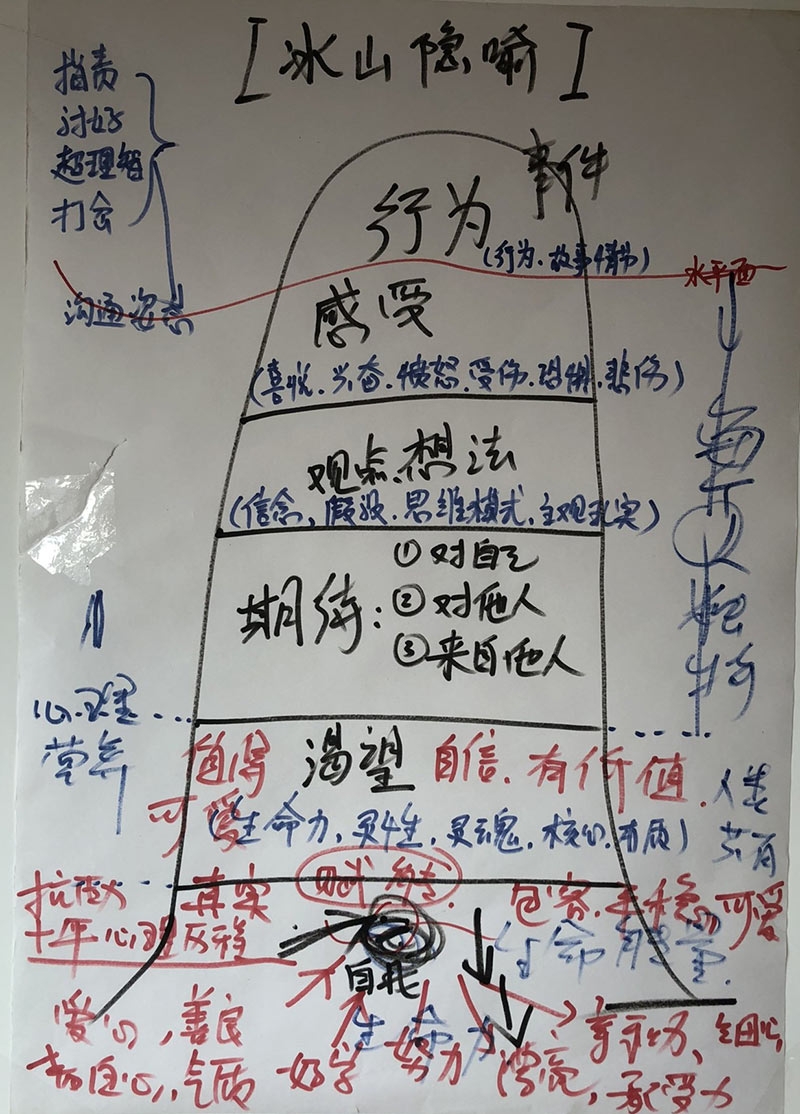 [冰山隐喻]
指责
讨好
超理智
打岔
沟通姿态
事件
行为
(行为.故事情节)
水平面
感受
(喜悦.兴奋.愤怒.受伤.恐惧.悲伤)
观点.想法
(信念,假设.思维模式.主观现实)
期待:
①对自己
②对他人
③来自他人
心理
营养
渴望
值得
自信.有价值.
可爱
(生命力,灵性,灵魂,核心,本质)
人类
共有
抗压力
真实
包容.
可爱
十年心理历程
自我
生命能量.
生命力
爱心,善良
好学
努力
漂亮
气质
细心,
承受力